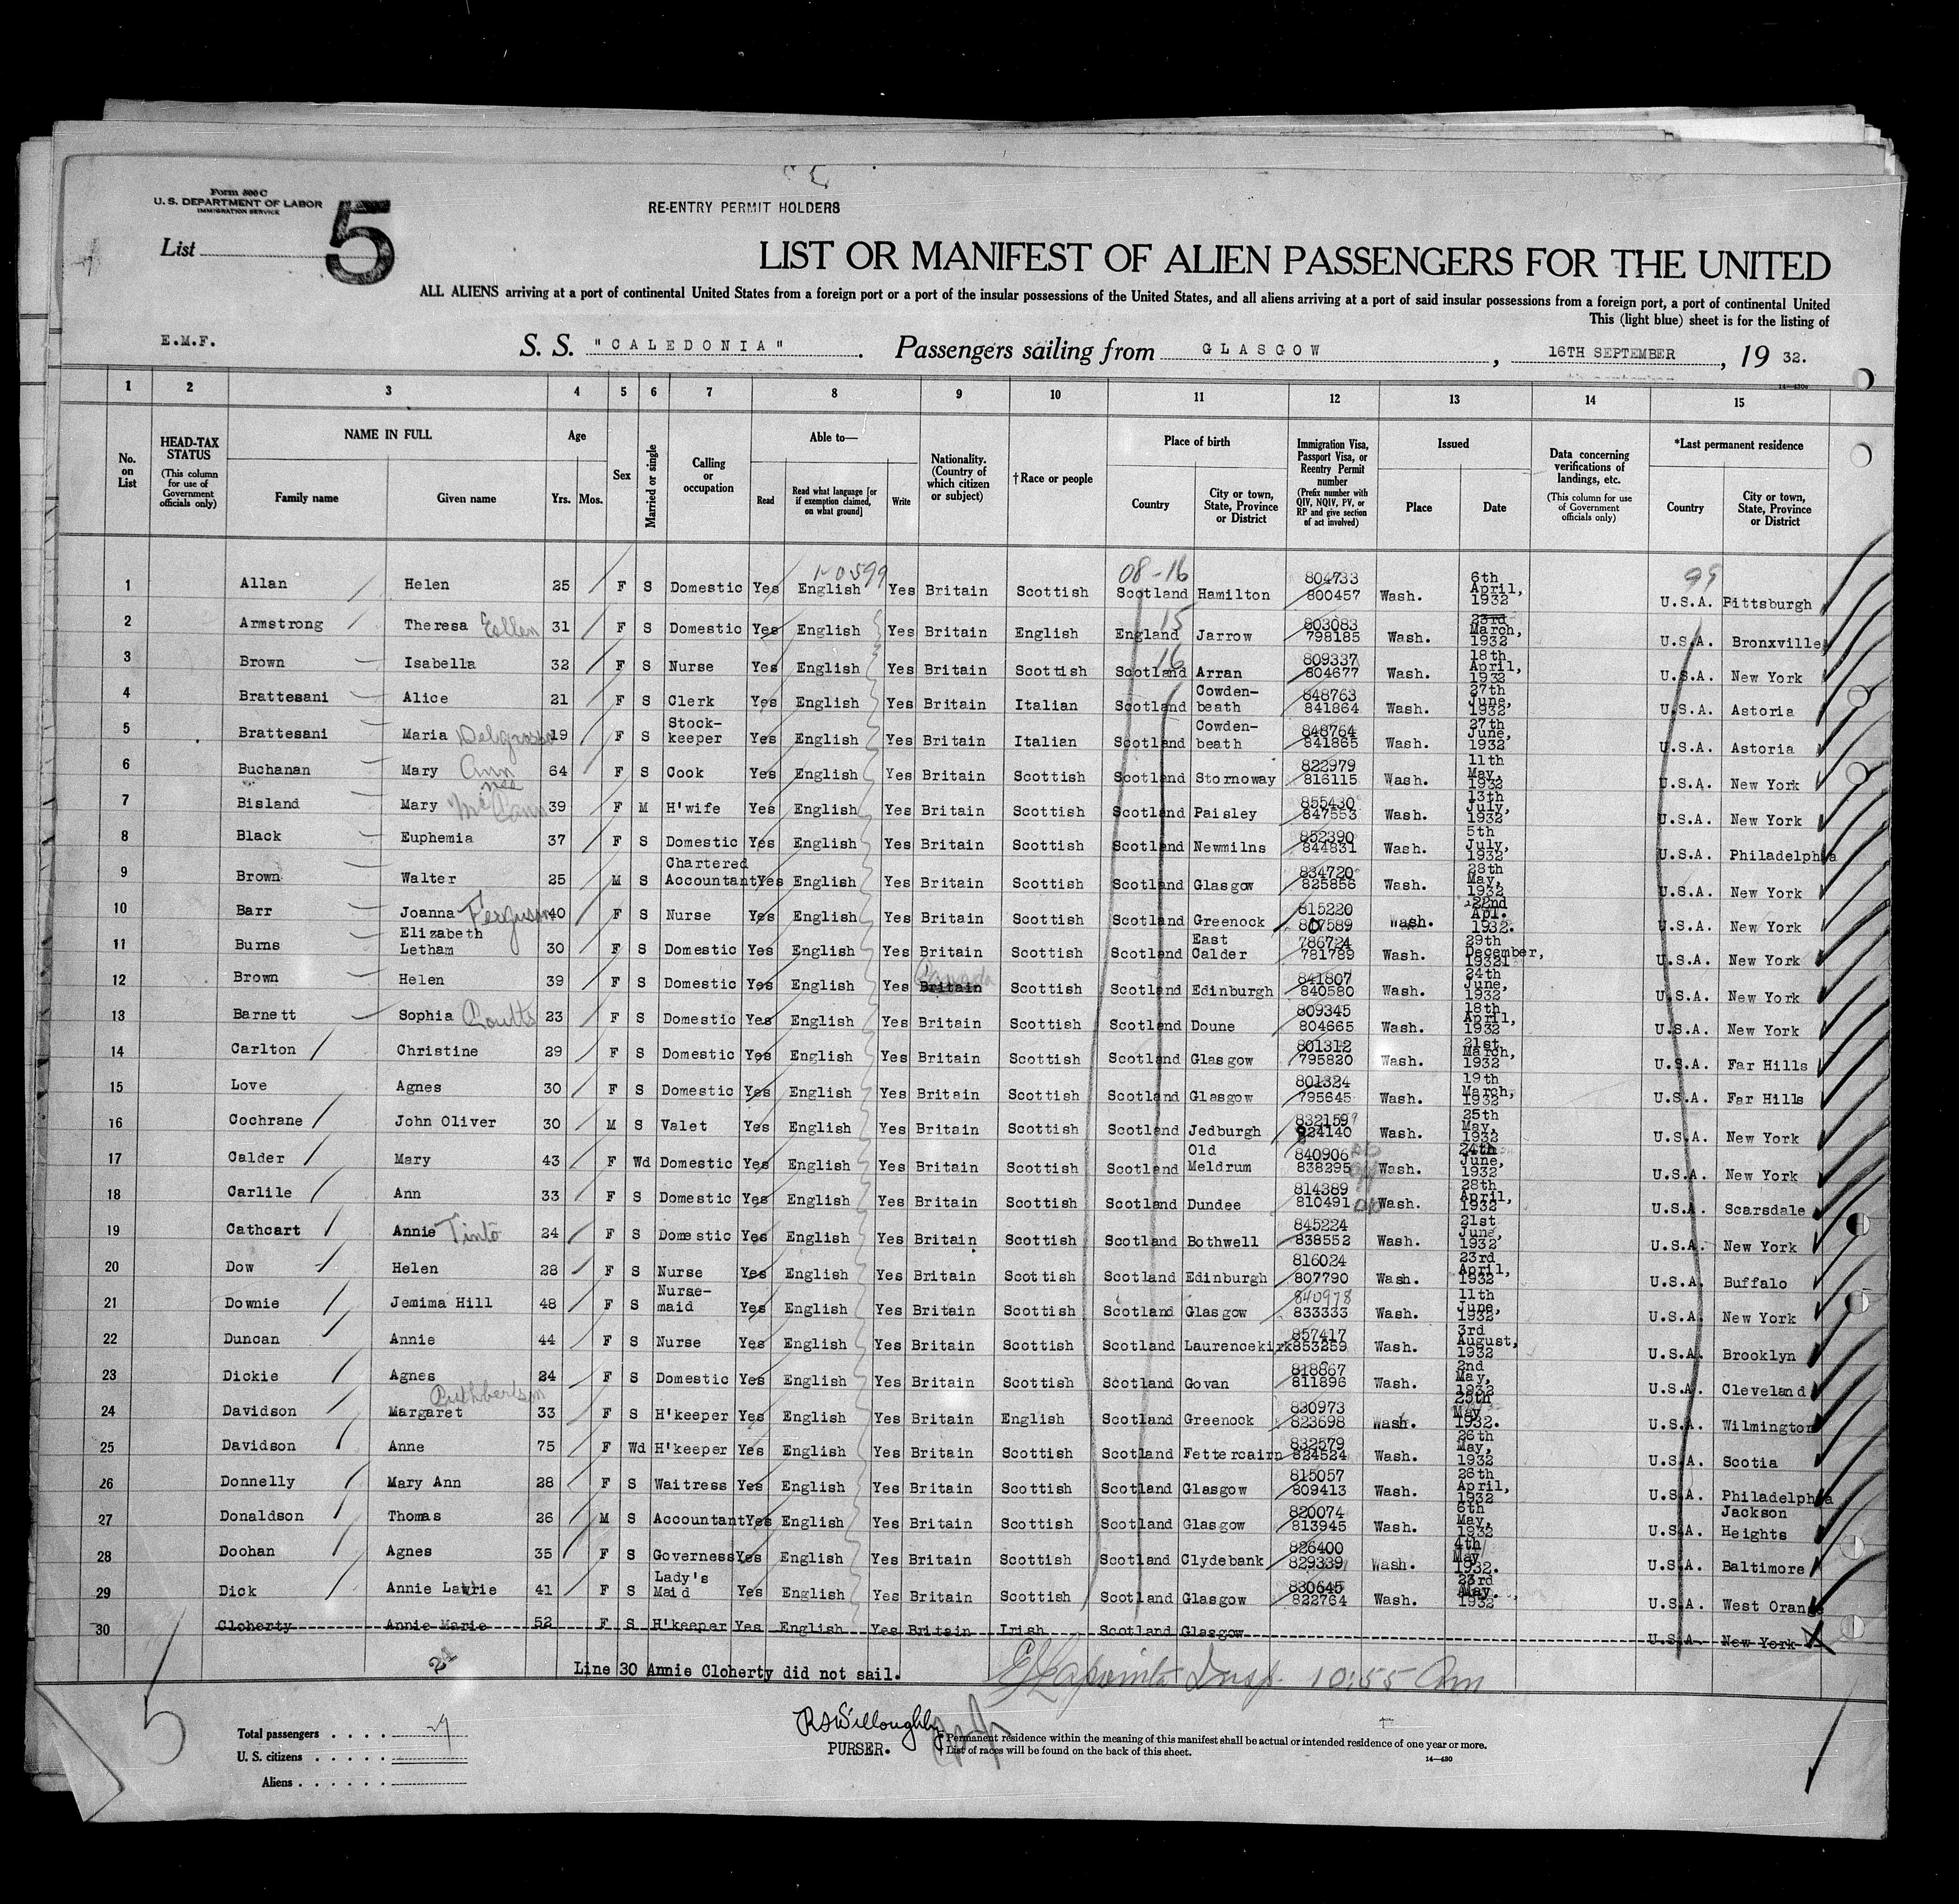 Form 500 C
U. S. DEPARTMENT OF LABOR
IMMIGRATION SERVICE
RE-ENTRY PERMIT HOLDERS
List 5
LIST OR MANIFEST OF ALIEN PASSENGERS FOR THE UNITED
ALL ALIENS arriving at a port of continental United States from a foreign port or a port of the insular possessions of the United States, and all aliens arriving at a port of said insular possessions from a foreign port, a port of continental United
This (light blue) sheet is for the listing of
E.M.F.
S. S. "CALEDONIA". Passengers sailing from GLASGOW, 16TH SEPTEMBER, 19 32.
1 2 3 4 5 6 7 8 9 10 11 12 13 14 15
No. on List
HEAD-TAX STATUS (This column for use of Government officials only)
NAME IN FULL Family name Given name
Age Yrs. Mos.
Sex
Married or single
Calling or occupation
Able to— Read Read what language [or if exemption claimed, on what ground] Write
Nationality. (Country of which citizen or subject)
†Race or people
Place of birth Country City or town, State, Province or District
Immigration Visa, Passport Visa, or Reentry Permit number (Prefix number with QIV, NQIV, PV, or RP and give section of act involved)
Issued Place Date
Data concerning verifications of landings, etc. (This column for use of Government officials only)
*Last permanent residence Country City or town, State, Province or District
1 Allan Helen 25 F S Domestic Yes English Yes Britain Scottish 08-16 Scotland Hamilton 804733 800457 Wash. 6th April, 1932 99 U.S.A. Pittsburgh
2 Armstrong Theresa Ellen 31 F S Domestic Yes English Yes Britain English 15 England Jarrow 803083 798185 Wash. 23rd March, 1932 U.S.A. Bronxville
3 Brown Isabella 32 F S Nurse Yes English Yes Britain Scottish 16 Scotland Arran 809337 804677 Wash. 18th April, 1932 U.S.A. New York
4 Brattesani Alice 21 F S Clerk Yes English Yes Britain Italian Scotland Cowden-beath 848763 841864 Wash. 27th June, 1932 U.S.A. Astoria
5 Brattesani Maria 19 F S Stock-keeper Yes English Yes Britain Italian Scotland Cowden-beath 848764 841865 Wash. 27th June, 1932 U.S.A. Astoria
6 Buchanan Mary Ann 64 F S Cook Yes English Yes Britain Scottish Scotland Stornoway 822979 816115 Wash. 11th May, 1932 U.S.A. New York
7 Bisland Mary nee McCann 39 F M H'wife Yes English Yes Britain Scottish Scotland Paisley 855430 847553 Wash. 13th July, 1932 U.S.A. New York
8 Black Euphemia 37 F S Domestic Yes English Yes Britain Scottish Scotland Newmilns 852390 844831 Wash. 5th July, 1932 U.S.A. Philadelphia
9 Brown Walter 25 M S Chartered Accountant Yes English Yes Britain Scottish Scotland Glasgow 834720 825856 Wash. 28th May, 1932 U.S.A. New York
10 Barr Joanna Ferguson 40 F S Nurse Yes English Yes Britain Scottish Scotland Greenock 815220 807589 Wash. 22nd Apl. 1932. U.S.A. New York
11 Burns Elizabeth Letham 30 F S Domestic Yes English Yes Britain Scottish Scotland East Calder 786724 781789 Wash. 29th December, 1931 U.S.A. New York
12 Brown Helen 39 F S Domestic Yes English Yes Canada Britain Scottish Scotland Edinburgh 841807 840580 Wash. 24th June, 1932 U.S.A. New York
13 Barnett Sophia Coutts 23 F S Domestic Yes English Yes Britain Scottish Scotland Doune 809345 804665 Wash. 18th April, 1932 U.S.A. New York
14 Carlton Christine 29 F S Domestic Yes English Yes Britain Scottish Scotland Glasgow 801312 795820 Wash. 21st March, 1932 U.S.A. Far Hills
15 Love Agnes 30 F S Domestic Yes English Yes Britain Scottish Scotland Glasgow 801324 795645 Wash. 19th March, 1932 U.S.A. Far Hills
16 Cochrane John Oliver 30 M S Valet Yes English Yes Britain Scottish Scotland Jedburgh 832159 824140 Wash. 25th May, 1932 U.S.A. New York
17 Calder Mary 43 F Wd Domestic Yes English Yes Britain Scottish Scotland Old Meldrum 840906 838295 Wash. 24th June, 1932 U.S.A. New York
18 Carlile Ann 33 F S Domestic Yes English Yes Britain Scottish Scotland Dundee 814389 810491 Wash. 28th April, 1932 U.S.A. Scarsdale
19 Cathcart Annie Tinto 24 F S Domestic Yes English Yes Britain Scottish Scotland Bothwell 845224 838552 Wash. 21st June, 1932 U.S.A. New York
20 Dow Helen 28 F S Nurse Yes English Yes Britain Scottish Scotland Edinburgh 816024 807790 Wash. 23rd April, 1932 U.S.A. Buffalo
21 Downie Jemima Hill 48 F S Nurse-maid Yes English Yes Britain Scottish Scotland Glasgow 840978 833333 Wash. 11th June, 1932 U.S.A. New York
22 Duncan Annie 44 F S Nurse Yes English Yes Britain Scottish Scotland Laurencekirk 857417 853259 Wash. 3rd August, 1932 U.S.A. Brooklyn
23 Dickie Agnes 24 F S Domestic Yes English Yes Britain Scottish Scotland Govan 818867 811896 Wash. 2nd May, 1932 U.S.A. Cleveland
24 Davidson Cuthbertson Margaret 33 F S H'keeper Yes English Yes Britain English Scotland Greenock 830973 823698 Wash. 25th May 1932. U.S.A. Wilmington
25 Davidson Anne 75 F Wd H'keeper Yes English Yes Britain Scottish Scotland Fettercairn 832579 824524 Wash. 26th May, 1932 U.S.A. Scotia
26 Donnelly Mary Ann 28 F S Waitress Yes English Yes Britain Scottish Scotland Glasgow 815057 809413 Wash. 26th April, 1932 U.S.A. Philadelphia
27 Donaldson Thomas 26 M S Accountant Yes English Yes Britain Scottish Scotland Glasgow 820074 813945 Wash. 6th May, 1932 U.S.A. Jackson Heights
28 Doohan Agnes 35 F S Governess Yes English Yes Britain Scottish Scotland Clydebank 826400 829339 Wash. 4th May 1932. U.S.A. Baltimore
29 Dick Annie Lawrie 41 F S Lady's Maid Yes English Yes Britain Scottish Scotland Glasgow 830645 822764 Wash. 23rd May. 1932 U.S.A. West Orange
30 Cloherty Annie Marie 52 F S H'keeper Yes English Yes Britain Irish Scotland Glasgow U.S.A. New York
Line 30 Annie Cloherty did not sail.
Insp. 10:55 am
5
Total passengers 29
U. S. citizens
Aliens
R S Willoughby
PURSER.
* Permanent residence within the meaning of this manifest shall be actual or intended residence of one year or more.
† List of races will be found on the back of this sheet.
14—430